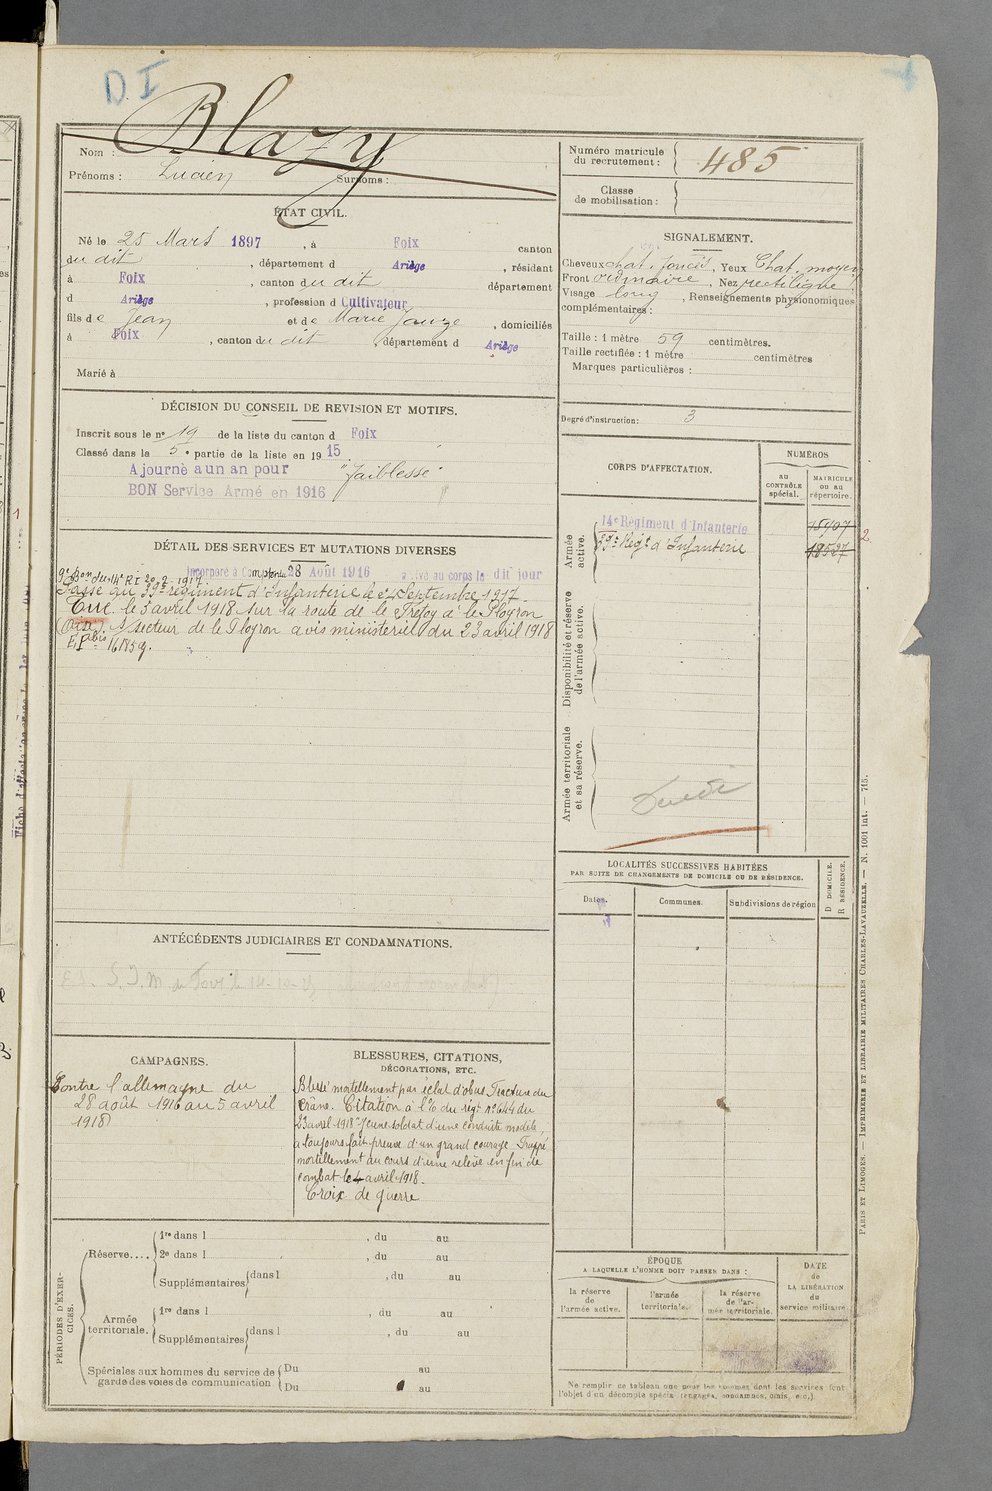 D I
Nom : Blazy
Prénoms : Lucien Surnoms :
Numéro matricule du recrutement : 485
Classe de mobilisation :
ÉTAT CIVIL.
Né le 25 Mars 1897, à Foix canton
du dit, département d Ariège, résidant
à Foix, canton du dit département
d Ariège, profession d Cultivateur
fils de Jean et de Marie Jauze, domiciliés
à Foix, canton du dit, département d Ariège
Marié à
SIGNALEMENT.
Cheveux chat. foncés, Yeux Chat. moyen
Front ordinaire, Nez rectiligne
Visage long, Renseignements physionomiques
complémentaires :
Taille : 1 mètre 59 centimètres.
Taille rectifiée : 1 mètre centimètres
Marques particulières :
Degré d'instruction : 3
DÉCISION DU CONSEIL DE REVISION ET MOTIFS.
Inscrit sous le nº 19 de la liste du canton d Foix
Classé dans la 5e partie de la liste en 1915
Ajourné a un an pour "faiblesse"
BON Service Armé en 1916
CORPS D'AFFECTATION.
NUMÉROS
au CONTRÔLE spécial.
MATRICULE ou au répertoire.
Armée active.
14e Régiment d'Infanterie 15907
59e Régt d'Infanterie 18527
2.
Disponibilité et réserve de l'armée active.
Armée territoriale et sa réserve.
DÉTAIL DES SERVICES ET MUTATIONS DIVERSES
Incorporé à Compter du 28 Août 1916 arrivé au corps le dit jour
9e Bon du 14e R I 20-2-1917.
Passé au 59e régiment d'Infanterie le 24 Septembre 1917.
Tué le 5 avril 1918 sur la route de le Tréfoy à le Ployron
(Oise). S/secteur de le Ployron avis ministériel du 23 avril 1918
LOCALITÉS SUCCESSIVES HABITÉES
PAR SUITE DE CHANGEMENTS DE DOMICILE OU DE RÉSIDENCE.
Dates.
Communes.
Subdivisions de région
D DOMICILE.
R RÉSIDENCE.
ANTÉCÉDENTS JUDICIAIRES ET CONDAMNATIONS.
CAMPAGNES.
Contre l'allemagne du
28 août 1916 au 5 avril
1918
BLESSURES, CITATIONS,
DÉCORATIONS, ETC.
Blessé mortellement par éclat d'obus Fracture du
crâne. Citation à l'O. du régt nº 644 du
23 avril 1918 "Jeune soldat d'une conduite modèle,
a toujours fait preuve d'un grand courage. Frappé
mortellement au cours d'une relève en fin de
combat le 4 avril 1918.
Croix de guerre
PÉRIODES D'EXERCICES.
Réserve....
1re dans l , du au
2e dans l , du au
Supplémentaires dans l , du au
Armée territoriale.
1re dans l , du au
Supplémentaires dans l , du au
Spéciales aux hommes du service de garde des voies de communication
Du au
Du au
ÉPOQUE
A LAQUELLE L'HOMME DOIT PASSER DANS :
la réserve de l'armée active.
l'armée territoriale.
la réserve de l'armée territoriale.
DATE de LA LIBÉRATION du service militaire.
Ne remplir ce tableau que pour les hommes dont les services font
l'objet d'un décompte spécial (engagés, condamnés, omis, etc.).
PARIS ET LIMOGES. — IMPRIMERIE ET LIBRAIRIE MILITAIRES CHARLES-LAVAUZELLE. — N. 1001 int. — 715.